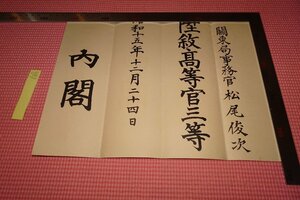 關東局事務官 松尾俊次
陞敘高等官三等
昭和十五年十二月二十四日
內閣